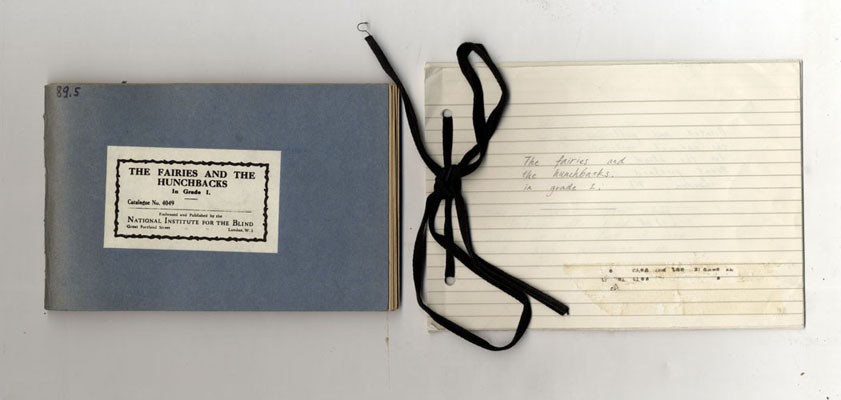 89.5
THE FAIRIES AND THE
HUNCHBACKS
In Grade 1.
Catalogue No. 4049
Embossed and Published by the
NATIONAL INSTITUTE FOR THE BLIND
Great Portland Street London, W. 1
The fairies and
the hunchbacks.
in grade 1.